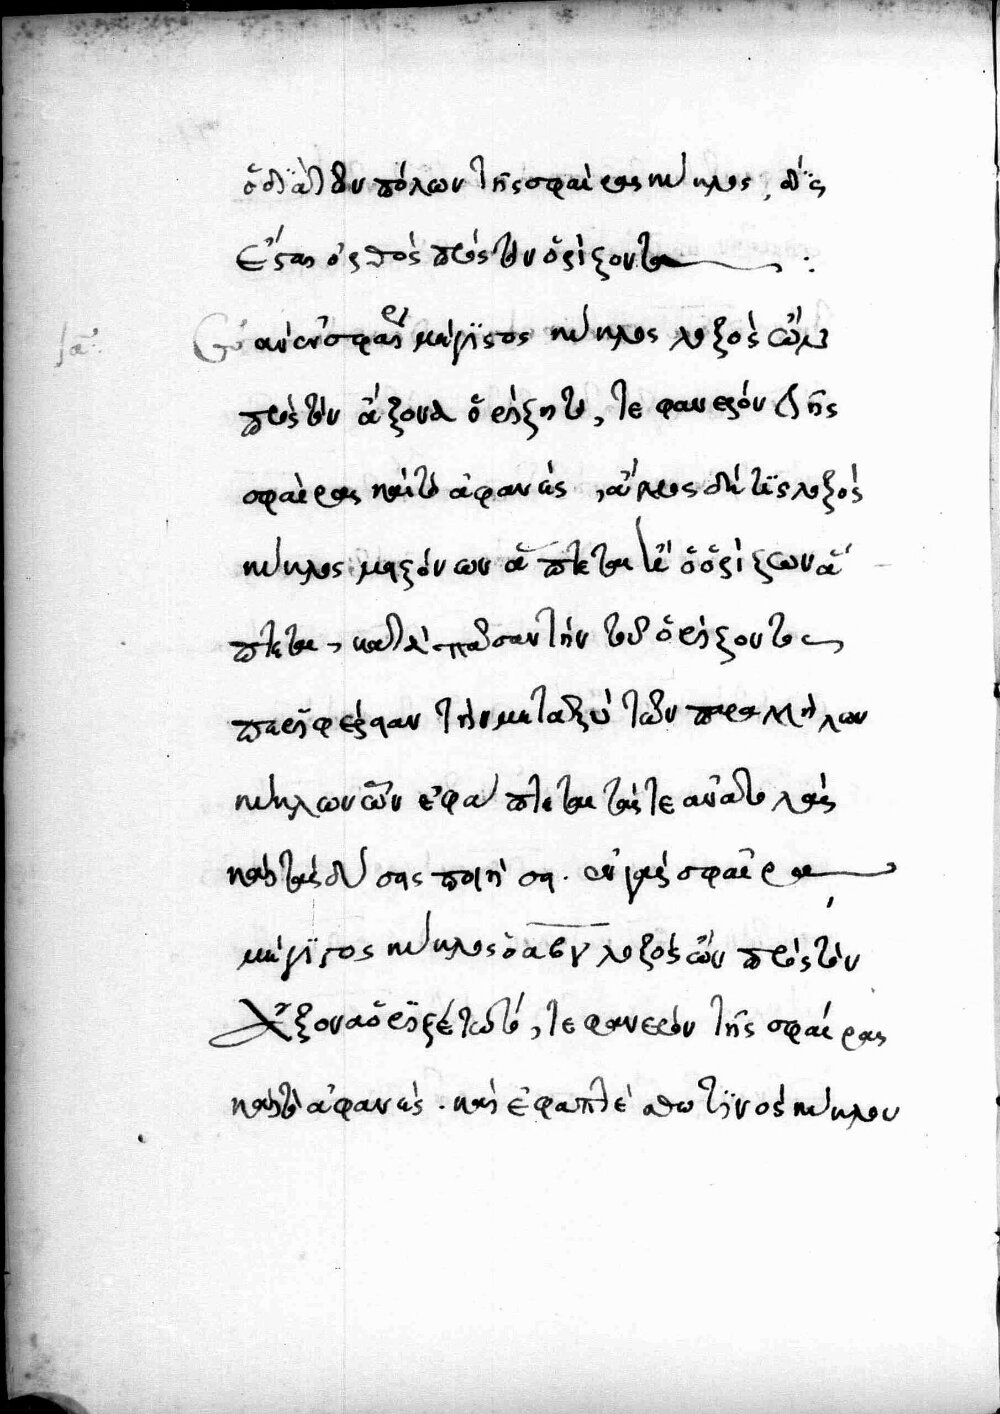 ὁ διὰ τῶν πόλων τῆς σφαίρας κύκλος, δὶς
ἔσται ὀρθὸς πρὸς τὸν ὁρίζοντα :
ια Ἐὰν ἐν σφαίρᾳ μέγιστος κύκλος λοξὸς ὢν
πρὸς τὸν ἄξονα ὁρίζῃ τό, τε φανερὸν τῆς
σφαίρας καὶ τὸ ἀφανές, ἄλλος δέ τις λοξὸς
κύκλος μειζόνων ἅπτεται ἢ ὁ ὁρίζων ἅ
πτεται, κατὰ πᾶσαν τὴν τοῦ ὁρίζοντος
περιφέρειαν τὴν μεταξὺ τῶν παραλλήλων
κύκλων ὧν ἐφάπτεται τάς τε ἀνατολὰς
καὶ τὰς δύσεις ποιήσει. ἐν γὰρ σφαίρᾳ
μέγιστος κύκλος ὁ αβγ λοξὸς ὢν πρὸς τὸν
ἄξονα ὁριζέτω τό, τε φανερὸν τῆς σφαίρας
καὶ τὸ ἀφανές. καὶ ἐφαπτέσθω τινὸς κύκλου